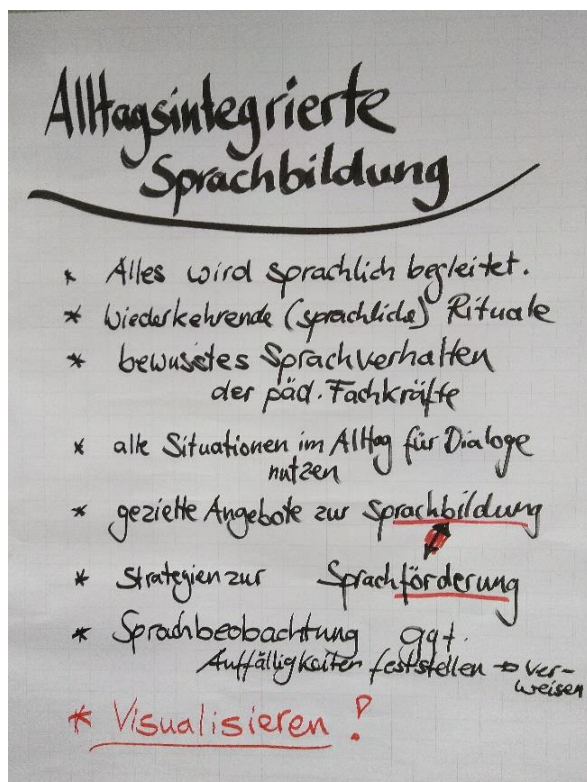 Alltagsintegrierte
Sprachbildung
* Alles wird sprachlich begleitet.
* Wiederkehrende (sprachliche) Rituale
* bewusstes Sprachverhalten
der päd. Fachkräfte
* alle Situationen im Alltag für Dialoge
nutzen
* gezielte Angebote zur Sprachbildung
* Strategien zur Sprachförderung
* Sprachbeobachtung ggf.
Auffälligkeiten feststellen → ver-
weisen
* Visualisieren!